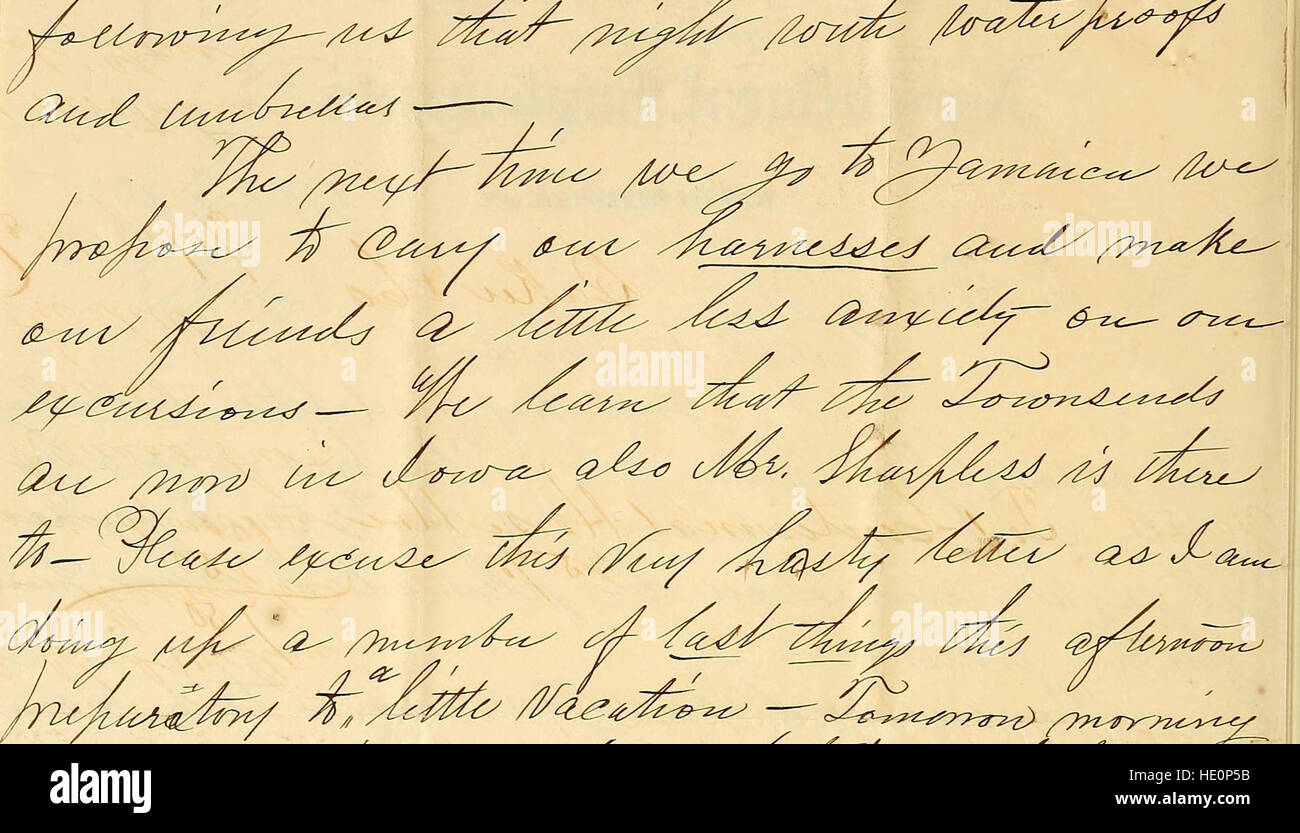 following us that night with waterproofs
and umbrellas —
The next time we go to Jamaica we
propose to carry our harnesses and make
our friends a little less anxiety on our
excursions — We learn that the Townsends
are now in Iowa also Mr. Sharpless is there
to — Please excuse this very hasty letter as I am
doing up a number of last things this afternoon
preparatory to a little vacation — Tomorrow morning
alamy
alamy stock photo
HE0P5B
www.alamy.com